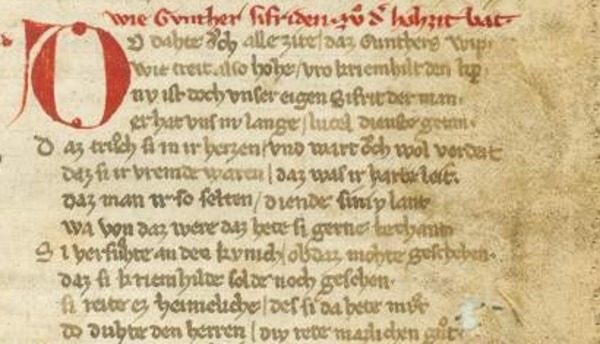 wie Gunther sifriden zů d' hohzit bat
DO dahte ǒch alle zite / daz Gunthers wip.
wie treit also hohe / vro kriemhilt den lip.
nv ist doch vnser eigen sifrit der man.
er hat vns nv lange / lucel dienste getan.
D az trůch si in ir herzen / vnd wart ǒch wol verdeit
daz si ir vremde waren / daz was ir harte leit.
daz man ir so selten / diende lant
wa von daz were daz hete si gerne bechant
S i versůhte an den kvnich / ob daz mohte geschehen.
daz si kriemhilde solde noch gesehen.
si reite ez heimeliche / des si da hete mvt
do duhte den herren / div rede mazlichen gůt